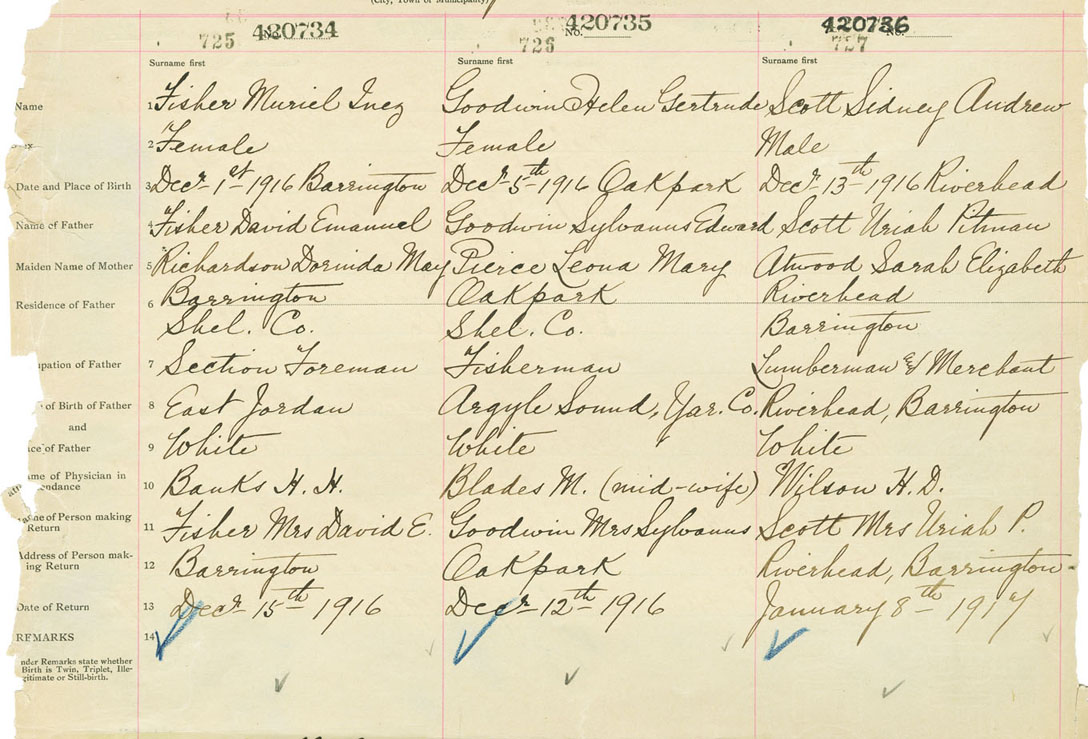 (City, Town or Municipality)
725 No. 420734
726 No. 420735
727 No. 420736
Surname first Surname first Surname first
Name 1 Fisher Muriel Inez Goodwin Helen Gertrude Scott Sidney Andrew
2 Female Female Male
Date and Place of Birth 3 Decr 1st 1916 Barrington Decr 5th 1916 Oakpark Decr 13th 1916 Riverhead
Name of Father 4 Fisher David Emanuel Goodwin Sylvanus Edward Scott Uriah Pitman
Maiden Name of Mother 5 Richardson Dorinda May Pierce Leona Mary Atwood Sarah Elizabeth
Residence of Father 6 Barrington Oakpark Riverhead
Shel. Co. Shel. Co. Barrington
upation of Father 7 Section Foreman Fisherman Lumberman & Merchant
of Birth of Father 8 East Jordan Argyle Sound, Yar. Co. Riverhead, Barrington
and
ace of Father 9 White White White
ame of Physician in
endance 10 Banks H. H. Blades M. (mid-wife) Wilson H. D.
ame of Person making
Return 11 Fisher Mrs David E. Goodwin Mrs Sylvanus Scott Mrs Uriah P.
Address of Person mak-
ing Return 12 Barrington Oakpark Riverhead, Barrington-
Date of Return 13 Decr 15th 1916 Decr 12th 1916 January 8th 1917
REMARKS 14
nder Remarks state whether
Birth is Twin, Triplet, Ille-
gitimate or Still-birth.